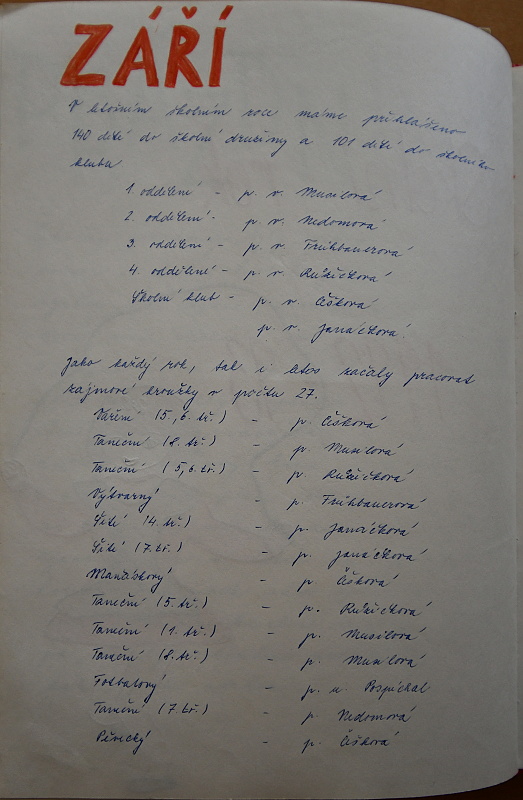 ZÁŘÍ
V letošním školním roce máme přihlášeno
140 dětí do školní družiny a 101 dětí do školního
klubu
1. oddělení - p. v. Musilová
2. oddělení - p. v. Nedomová
3. oddělení - p. v. Frühbauerová
4. oddělení - p. v. Růžičková
Školní klub - p. v. Číšková
p. v. Janáčková
Jako každý rok, tak i letos začaly pracovat
zájmové kroužky v počtu 27.
Vaření (5., 6. tř.) - p. Číšková
Taneční (8. tř.) - p. Musilová
Taneční (5, 6. tř.) - p. Růžičková
Výtvarný - p. Frühbauerová
Šití (4. tř.) - p. Janáčková
Šití (7. tř.) - p. Janáčková
Maňáskový - p. Číšková
Taneční (5. tř.) - p. Růžičková
Taneční (1. tř.) - p. Musilová
Taneční (8. tř.) - p. Musilová
Fotbalový - p. u. Pospíchal
Taneční (7. tř.) - p. Nedomová
Pěvecký - p. Číšková